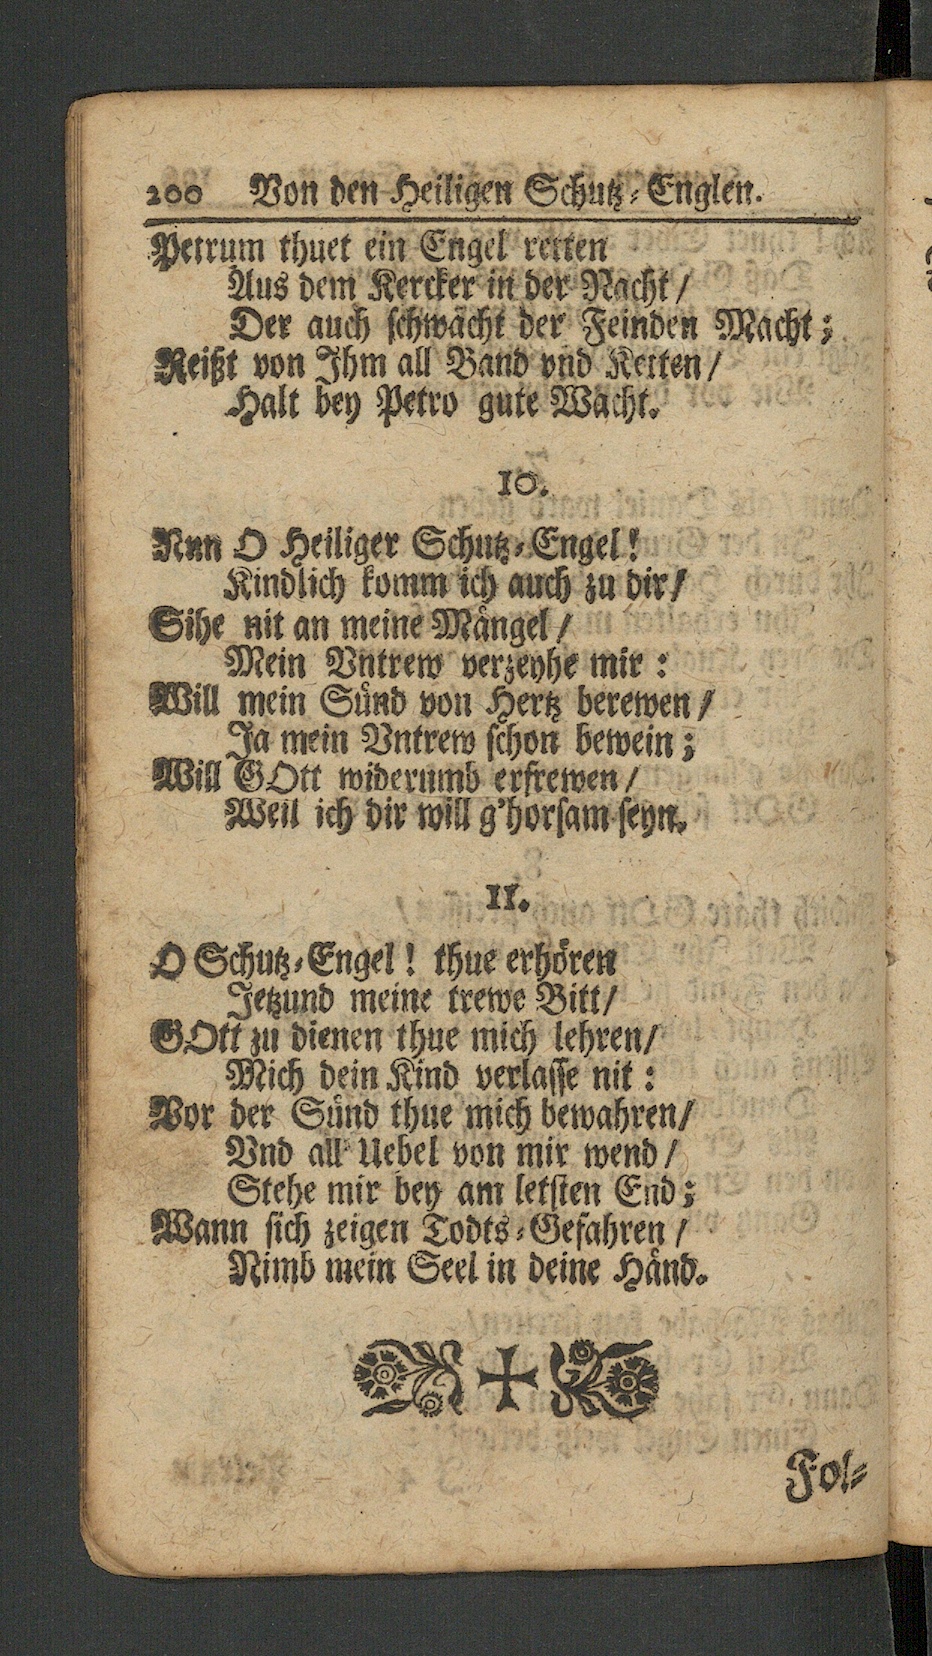 200 Von den Heiligen Schutz-Englen.
Petrum thuet ein Engel retten
Aus dem Kercker in der Nacht/
Der auch schwächt der Feinden Macht;
Reißt von Ihm all Band vnd Ketten/
Halt bey Petro gute Wacht.
10.
Nun O Heiliger Schutz-Engel!
Kindlich komm ich auch zu dir/
Sihe nit an meine Mängel/
Mein Vntrew verzeyhe mir:
Will mein Sünd von Hertz berewen/
Ja mein Vntrew schon bewein;
Will GOtt widerumb erfrewen/
Weil ich dir will g'horsam seyn.
11.
O Schutz-Engel! thue erhören
Jetzund meine trewe Bitt/
GOtt zu dienen thue mich lehren/
Mich dein Kind verlasse nit:
Vor der Sünd thue mich bewahren/
Vnd all Uebel von mir wend/
Stehe mir bey am letsten End;
Wann sich zeigen Todts-Gefahren/
Nimb mein Seel in deine Händ.
Fol-